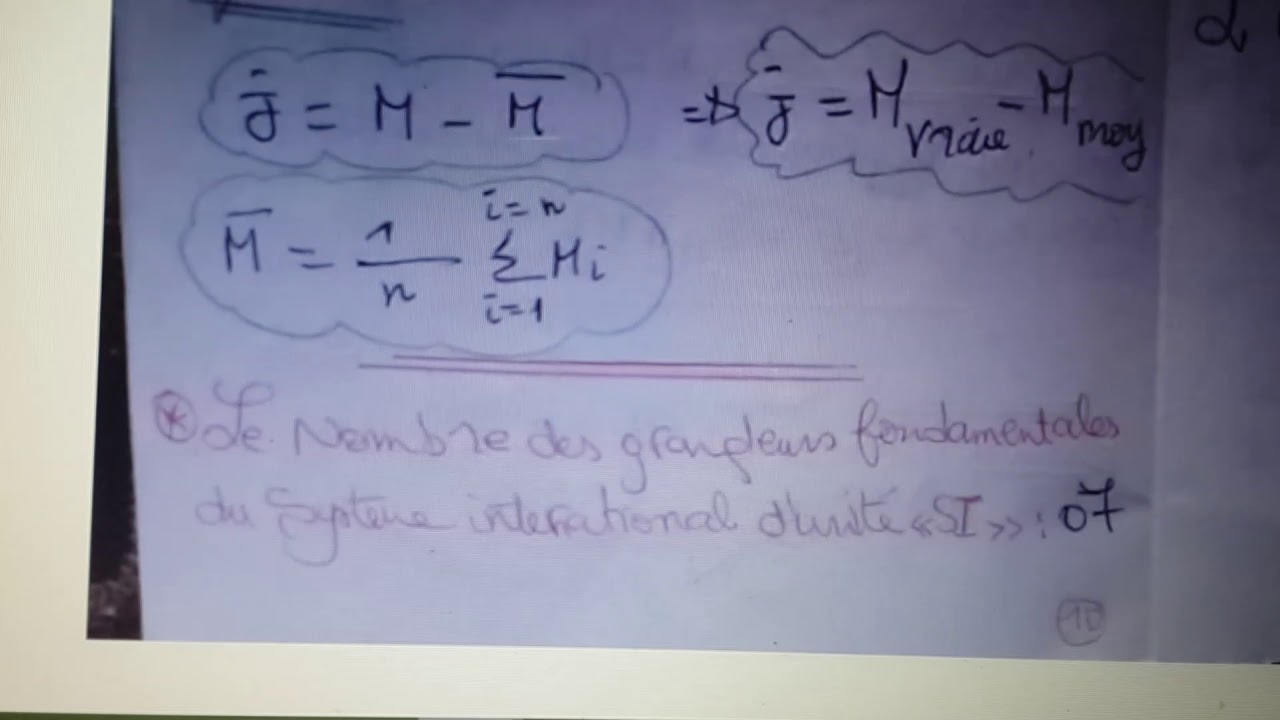 J̄ = M - M̄ => J̄ = M vraie - M moy
M̄ = 1/n Σ Mi
i=n
i=1
* Le Nombre des grandeurs fondamentales
du Système international d'unité «SI» : 07
10